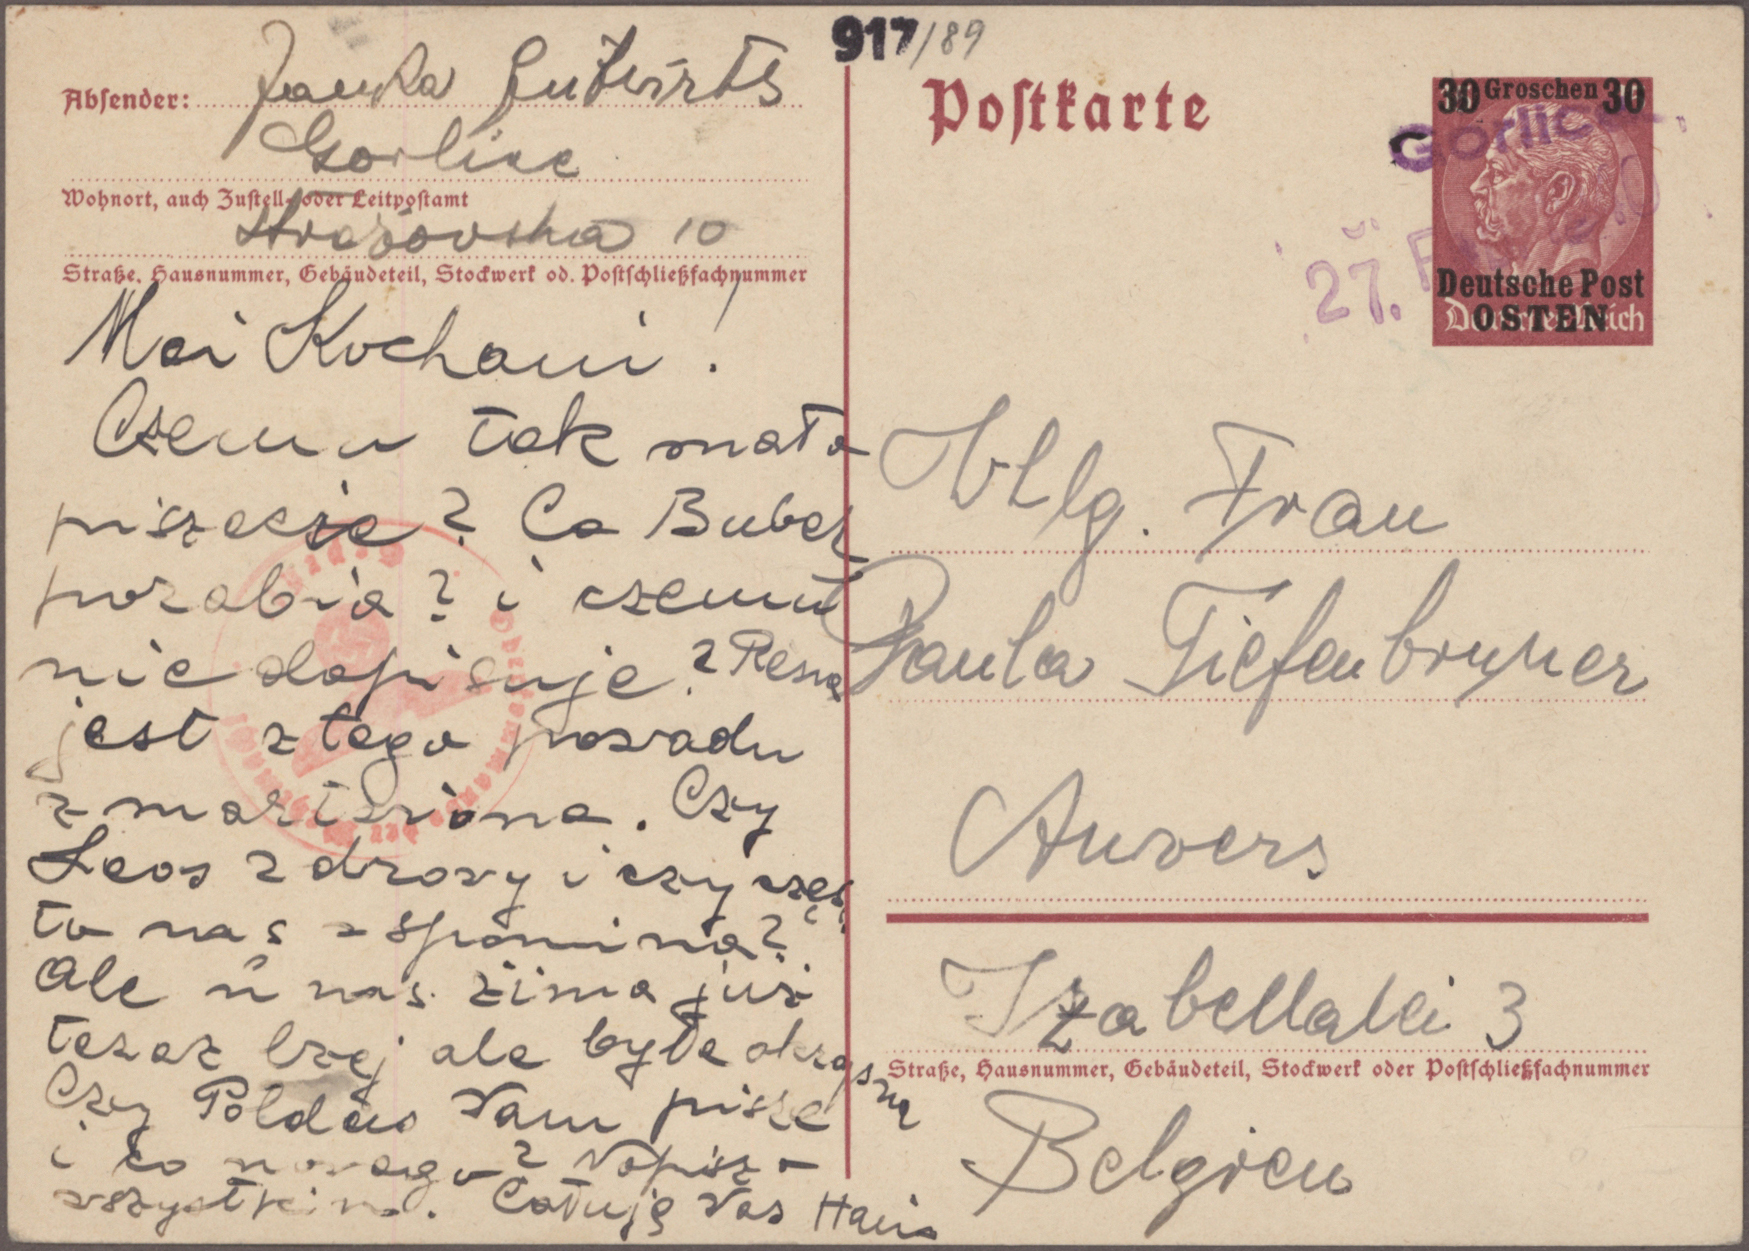 917/89
Absender: Janka Gutwirth
Gorlice
Wohnort, auch Zustell- oder Leitpostamt
Stróżowska 10
Straße, Hausnummer, Gebäudeteil, Stockwerk od. Postschließfachnummer
Moi Kochani!
Czemu tak mało
piszecie? Co Buber
porabia? i czemu
nie dopisuje? Resia
jest z tego powodu
zmartwiona. Czy
Leos zdrowy i czy częs-
to nas wspomina?
Ale u nas zima już
teraz lżej ale była okropna
Czy Poldas Wam pisze
i co nowego? Napisz o
wszystkim. Całuję Was Hania
Postkarte
30 Groschen 30
Gorlice
27. F
Deutsche Post
OSTEN
Deutsches Reich
Wllg. Frau
Paula Tiefenbrunner
Anvers
Izabellalei 3
Straße, Hausnummer, Gebäudeteil, Stockwerk oder Postschließfachnummer
Belgien
Oberkommando der Wehrmacht
Geprüft